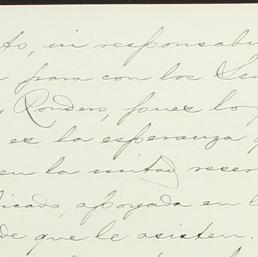 to, in responsabi
para con los Se
Rondero, pues lo p
es la esperanza q
en la mitad reser
icado, apoyada en l
de que le asisten.